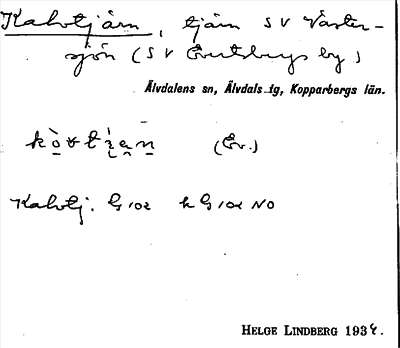 Kalvtjärn, tjärn SV Väster-
sjön (SV Evertsbergs by)
Älvdalens sn, Älvdals tg, Kopparbergs län.
(Ev.)
Kalvtj. G 102 k G 102 NO
HELGE LINDBERG 1934.